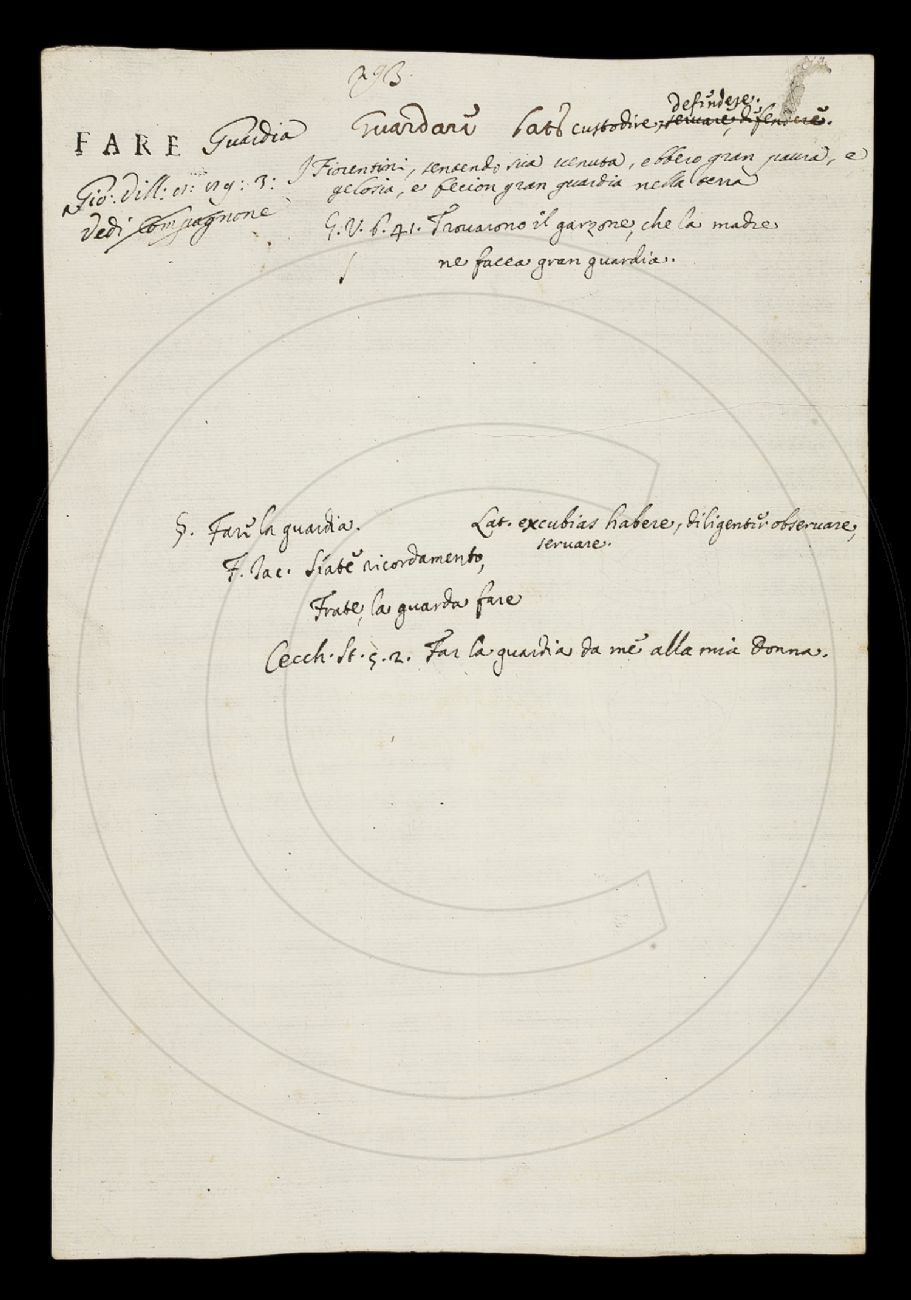 293.
FARE Guardia Guardare Lat: custodire, servare, difendere.
defendere.
I Fiorentini, sentendo sua venuta, ebbero gran paura, e
gelosia, e fecion gran guardia nella terra
Gio: Vill: 119: 3:
Vedi Compagnone
G. V. 6. 41. Trovarono il garzone, che la madre
ne facea gran guardia.
§. Fare la guardia. Lat. excubias habere, diligenter observare,
servare.
F. Iac. Siate ricordamento,
Frate, la guarda fare
Cecch. St. 5. 2. Far la guardia da me alla mia Donna.